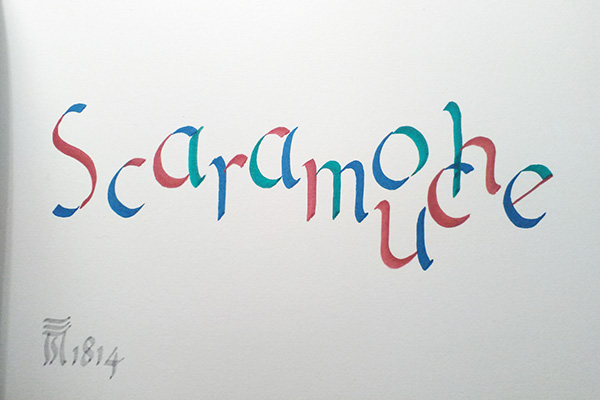 Scaramouche
1814